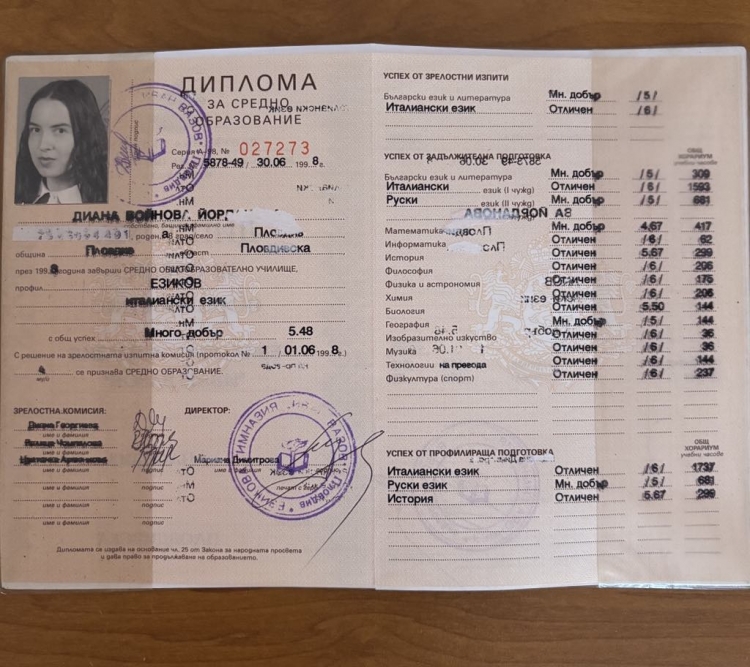 ДИПЛОМА
ЗА СРЕДНО
ОБРАЗОВАНИЕ
Серия А-98, № 027273
5878-49 / 30.06 1998.
ДИАНА ВОЙНОВА
роден
Пловдив
община Пловдив Пловдивска
през 1998 година завърши СРЕДНО ОБЩООБРАЗОВАТЕЛНО УЧИЛИЩЕ,
профил ЕЗИКОВ
италиански език
с общ успех Много добър 5.48
С решение на зрелостната изпитна комисия (протокол № 1 / 01.06 1998 г.)
се признава СРЕДНО ОБРАЗОВАНИЕ.
ЗРЕЛОСТНА КОМИСИЯ: ДИРЕКТОР:
Диана Георгиева
име и фамилия подпис
Димитрова
име и фамилия подпис
име и фамилия подпис
име и фамилия подпис
име и фамилия подпис
Дипломата се издава на основание чл. 25 от Закона за народната просвета
и дава право за продължаване на образованието.
УСПЕХ ОТ ЗРЕЛОСТНИ ИЗПИТИ
Български език и литература Мн. добър /5/
Италиански език Отличен /6/
УСПЕХ ОТ ЗАДЪЛЖИТЕЛНА ПОДГОТОВКА ОБЩ ХОРАРИУМ учебни часове
Български език и литература Мн. добър /5/ 309
Италиански език (I чужд) Отличен /6/ 1593
Руски език (II чужд) Мн. добър /5/ 661
Математика Мн. добър 4.67 417
Информатика Отличен /6/ 62
История Отличен 5.67 299
Философия Отличен /6/ 206
Физика и астрономия Отличен /6/ 175
Химия Отличен /6/ 206
Биология Отличен 5.50 144
География Мн. добър /5/ 144
Изобразително изкуство Отличен /6/ 36
Музика Отличен /6/ 36
Технологии на превода Отличен /6/ 144
Физкултура (спорт) Отличен /6/ 237
УСПЕХ ОТ ПРОФИЛИРАЩА ПОДГОТОВКА ОБЩ ХОРАРИУМ учебни часове
Италиански език Отличен /6/ 1737
Руски език Мн. добър /5/ 661
История Отличен 5.67 299